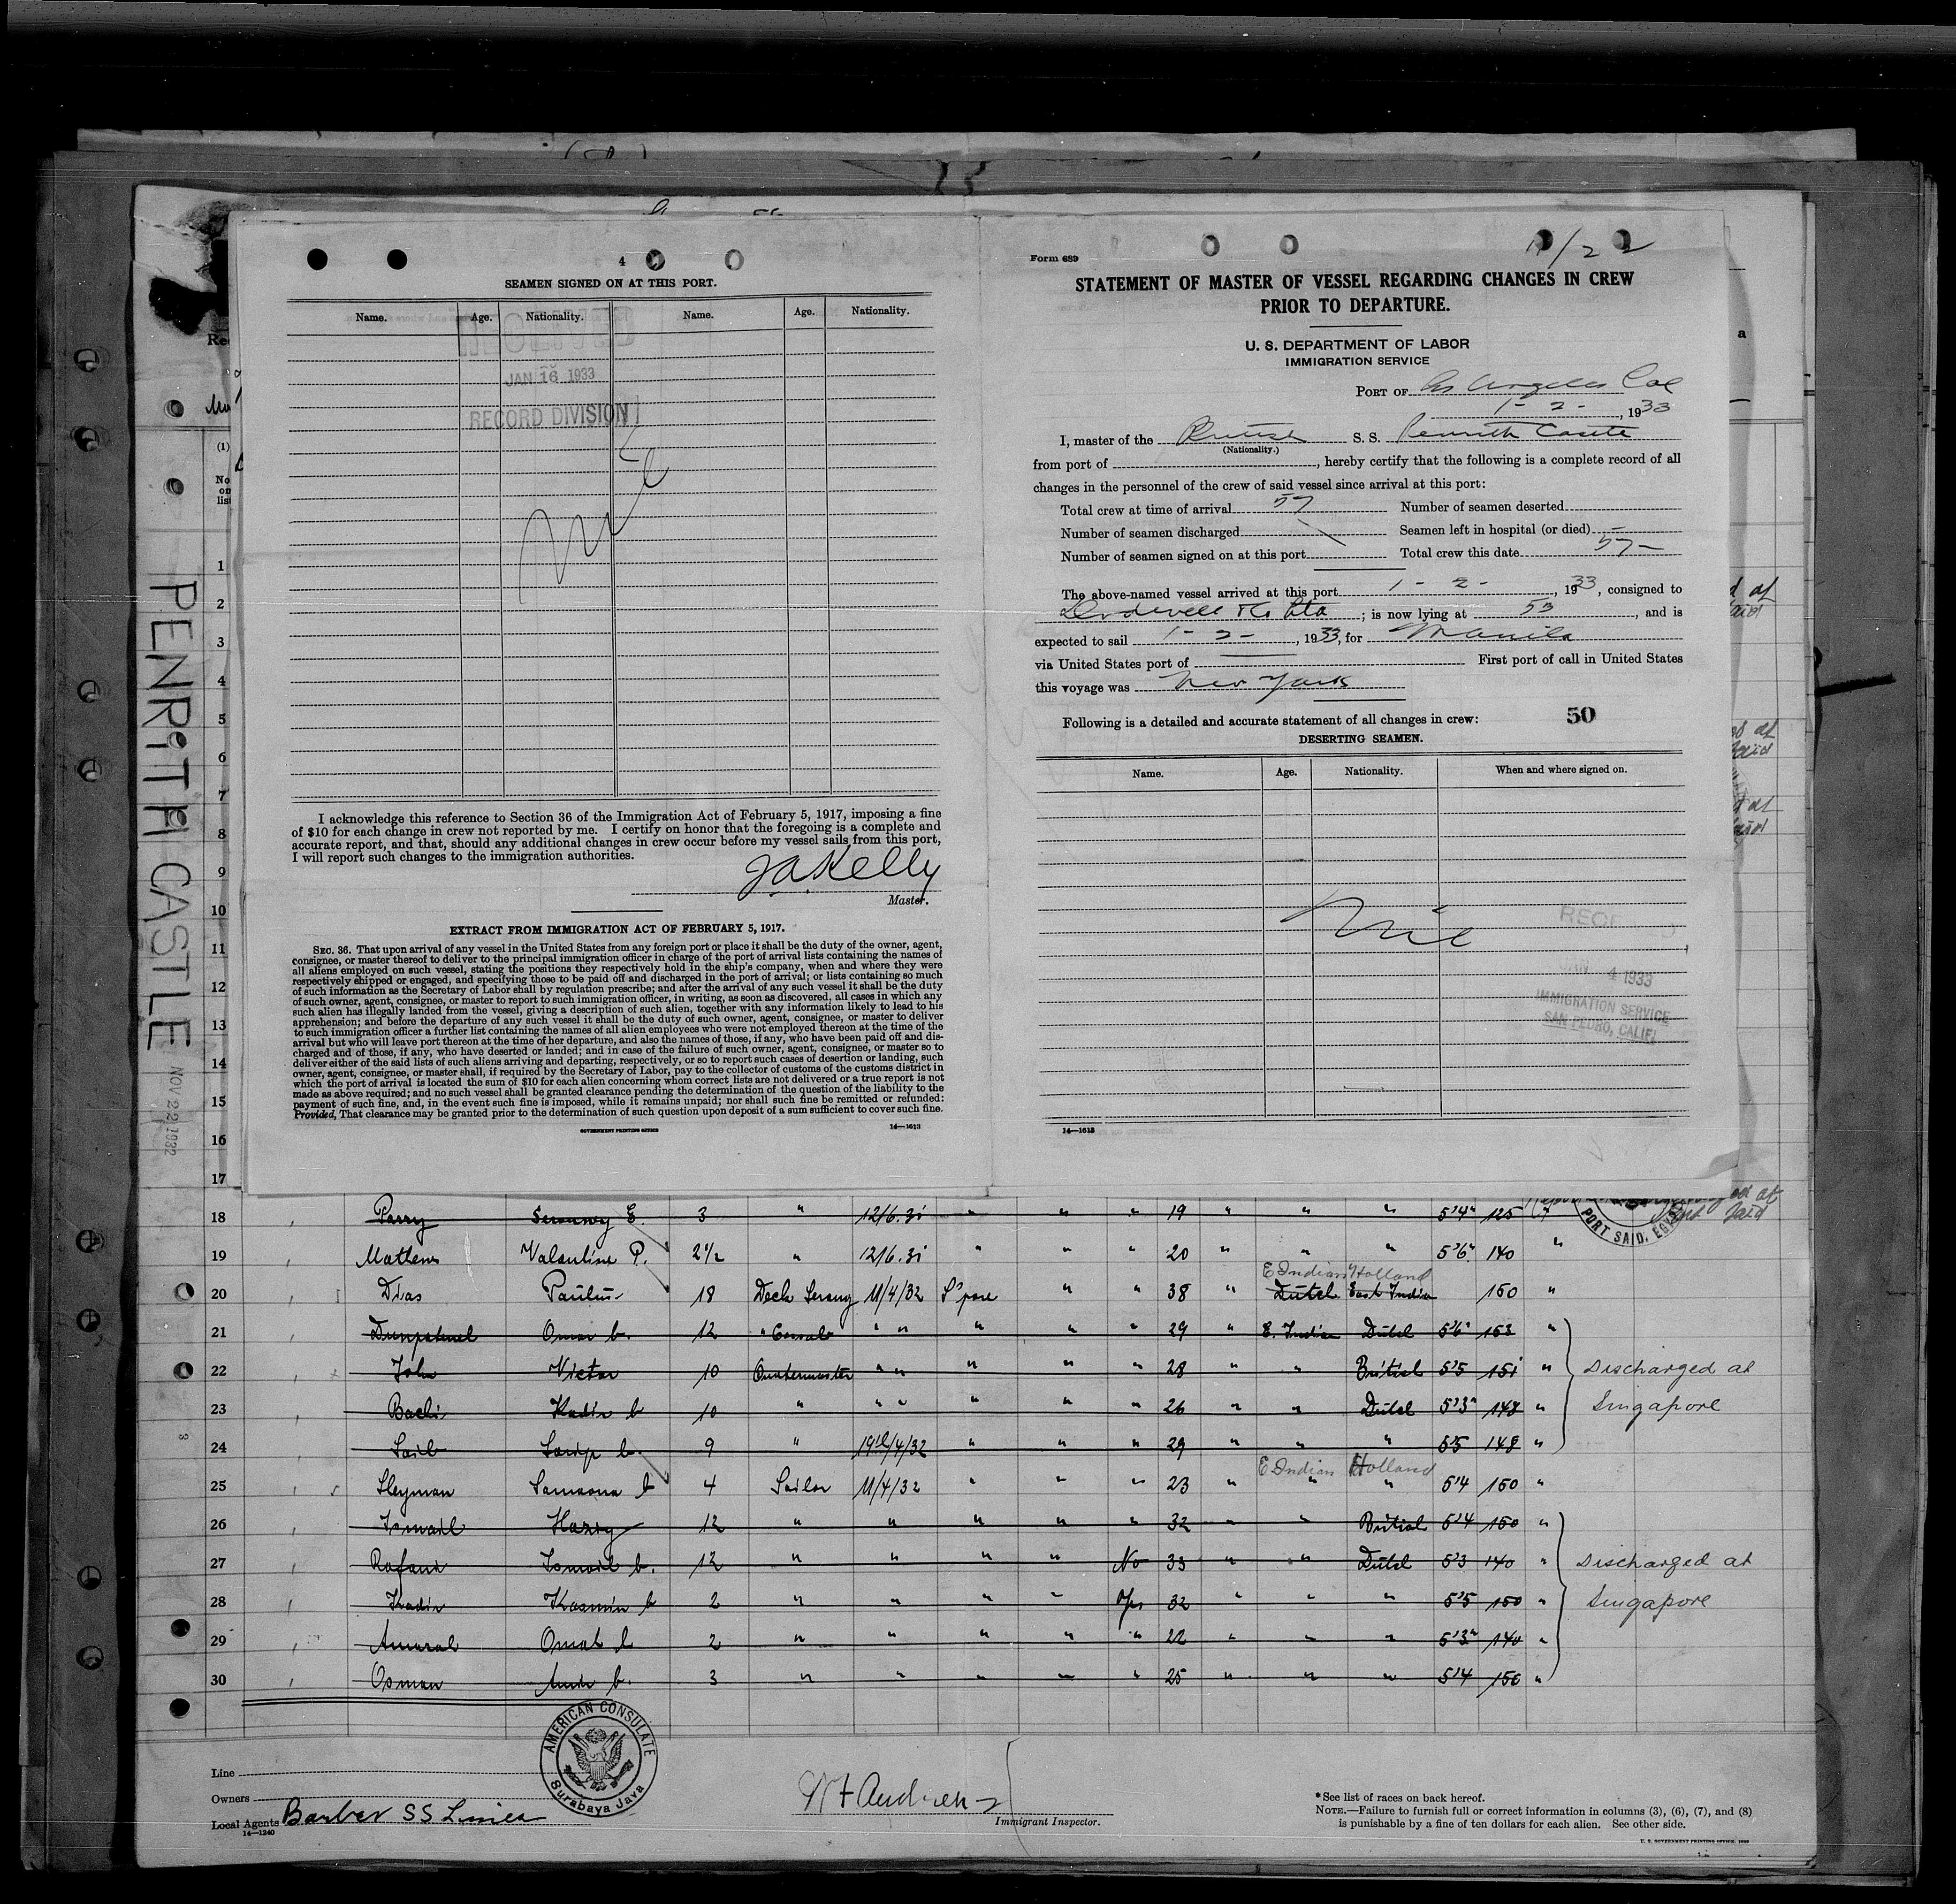 4
SEAMEN SIGNED ON AT THIS PORT.
Name. Age. Nationality. Name. Age. Nationality.
RECEIVED
JAN 16 1933
RECORD DIVISION
Nil
I acknowledge this reference to Section 36 of the Immigration Act of February 5, 1917, imposing a fine
of $10 for each change in crew not reported by me. I certify on honor that the foregoing is a complete and
accurate report, and that, should any additional changes in crew occur before my vessel sails from this port,
I will report such changes to the immigration authorities.
JAKelly
Master.
EXTRACT FROM IMMIGRATION ACT OF FEBRUARY 5, 1917.
SEC. 36. That upon arrival of any vessel in the United States from any foreign port or place it shall be the duty of the owner, agent,
consignee, or master thereof to deliver to the principal immigration officer in charge of the port of arrival lists containing the names of
all aliens employed on such vessel, stating the positions they respectively hold in the ship's company, when and where they were
respectively shipped or engaged, and specifying those to be paid off and discharged in the port of arrival; or lists containing so much
of such information as the Secretary of Labor shall by regulation prescribe; and after the arrival of any such vessel it shall be the duty
of such owner, agent, consignee, or master to report to such immigration officer, in writing, as soon as discovered, all cases in which any
such alien has illegally landed from the vessel, giving a description of such alien, together with any information likely to lead to his
apprehension; and before the departure of any such vessel it shall be the duty of such owner, agent, consignee, or master to deliver
to such immigration officer a further list containing the names of all alien employees who were not employed thereon at the time of the
arrival but who will leave port thereon at the time of her departure, and also the names of those, if any, who have been paid off and dis-
charged and of those, if any, who have deserted or landed; and in case of the failure of such owner, agent, consignee, or master so to
deliver either of the said lists of such aliens arriving and departing, respectively, or so to report such cases of desertion or landing, such
owner, agent, consignee, or master shall, if required by the Secretary of Labor, pay to the collector of customs of the customs district in
which the port of arrival is located the sum of $10 for each alien concerning whom correct lists are not delivered or a true report is not
made as above required; and no such vessel shall be granted clearance pending the determination of the question of the liability to the
payment of such fine, and, in the event such fine is imposed, while it remains unpaid; nor shall such fine be remitted or refunded:
Provided, That clearance may be granted prior to the determination of such question upon deposit of a sum sufficient to cover such fine.
GOVERNMENT PRINTING OFFICE 14—1613
Form 689
STATEMENT OF MASTER OF VESSEL REGARDING CHANGES IN CREW
PRIOR TO DEPARTURE.
U. S. DEPARTMENT OF LABOR
IMMIGRATION SERVICE
PORT OF Los Angeles Cal
1 - 2 - , 1933
I, master of the British S. S. Penrith Castle
(Nationality.)
from port of , hereby certify that the following is a complete record of all
changes in the personnel of the crew of said vessel since arrival at this port:
Total crew at time of arrival 57 Number of seamen deserted
Number of seamen discharged Seamen left in hospital (or died) —
Number of seamen signed on at this port Total crew this date 57 —
The above-named vessel arrived at this port 1 - 2 - , 1933, consigned to
Dodwell & Co Ltd ; is now lying at 53 , and is
expected to sail 1 - 2 - , 1933, for Manila
via United States port of First port of call in United States
this voyage was New York
Following is a detailed and accurate statement of all changes in crew: 50
DESERTING SEAMEN.
Name. Age. Nationality. When and where signed on.
Nil
JAN 4 1933
IMMIGRATION SERVICE
SAN PEDRO, CALIF.
14—1613
PENRITH CASTLE
NOV 22 1932
(1)
No
on
list
1
2
3
4
5
6
7
8
9
10
11
12
13
14
15
16
17
18 Parry E. 3 " 12/6.31 " " " 19 " " " 5'4" 125 "
PORT SAID, EGYPT
19 Mathews Valentine P. 2 1/2 " 12/6.31 " " " 20 " " " 5'6" 140 "
E Indian Holland
20 Dias Paulus 18 Deck Serang 11/4/32 S'pore " " 38 " Dutch East Indian 150 "
21 Omar b. 12 " " " " " " 29 " E. Indian Dutch 5'6" 153 "
22 John Victor 10 Quartermaster " " " " " 28 " " British 5'5 151 "
Discharged at
23 Bachi Kadir b 10 " " " " " " 26 " " Dutch 5'3" 148 "
Singapore
24 Saib Sarip b. 9 " 19th/4/32 " " " 29 " " " 5'5 148 "
E Indian Holland
25 Sleyman Samsona b 4 Sailor 11/4/32 " " " 23 " " " 5'4 150 "
26 Ismail Harry 12 " " " " " 32 " " British 5'4 150 "
27 Rafani Ismail b. 12 " " " " No 33 " " Dutch 5'3 140 "
Discharged at
28 Kadir Kasmin b 2 " " " " Yes 32 " " " 5'5 150 "
Singapore
29 Amaral Omat b 2 " " " " " 22 " " " 5'3" 140 "
30 Osman Amir b. 3 " " " " " 25 " " " 5'4 150 "
AMERICAN CONSULATE
Surabaya Java
Line
Owners
Local Agents Barber SS Lines
14—1240
Immigrant Inspector.
*See list of races on back hereof.
NOTE.—Failure to furnish full or correct information in columns (3), (6), (7), and (8)
is punishable by a fine of ten dollars for each alien. See other side.
U. S. GOVERNMENT PRINTING OFFICE